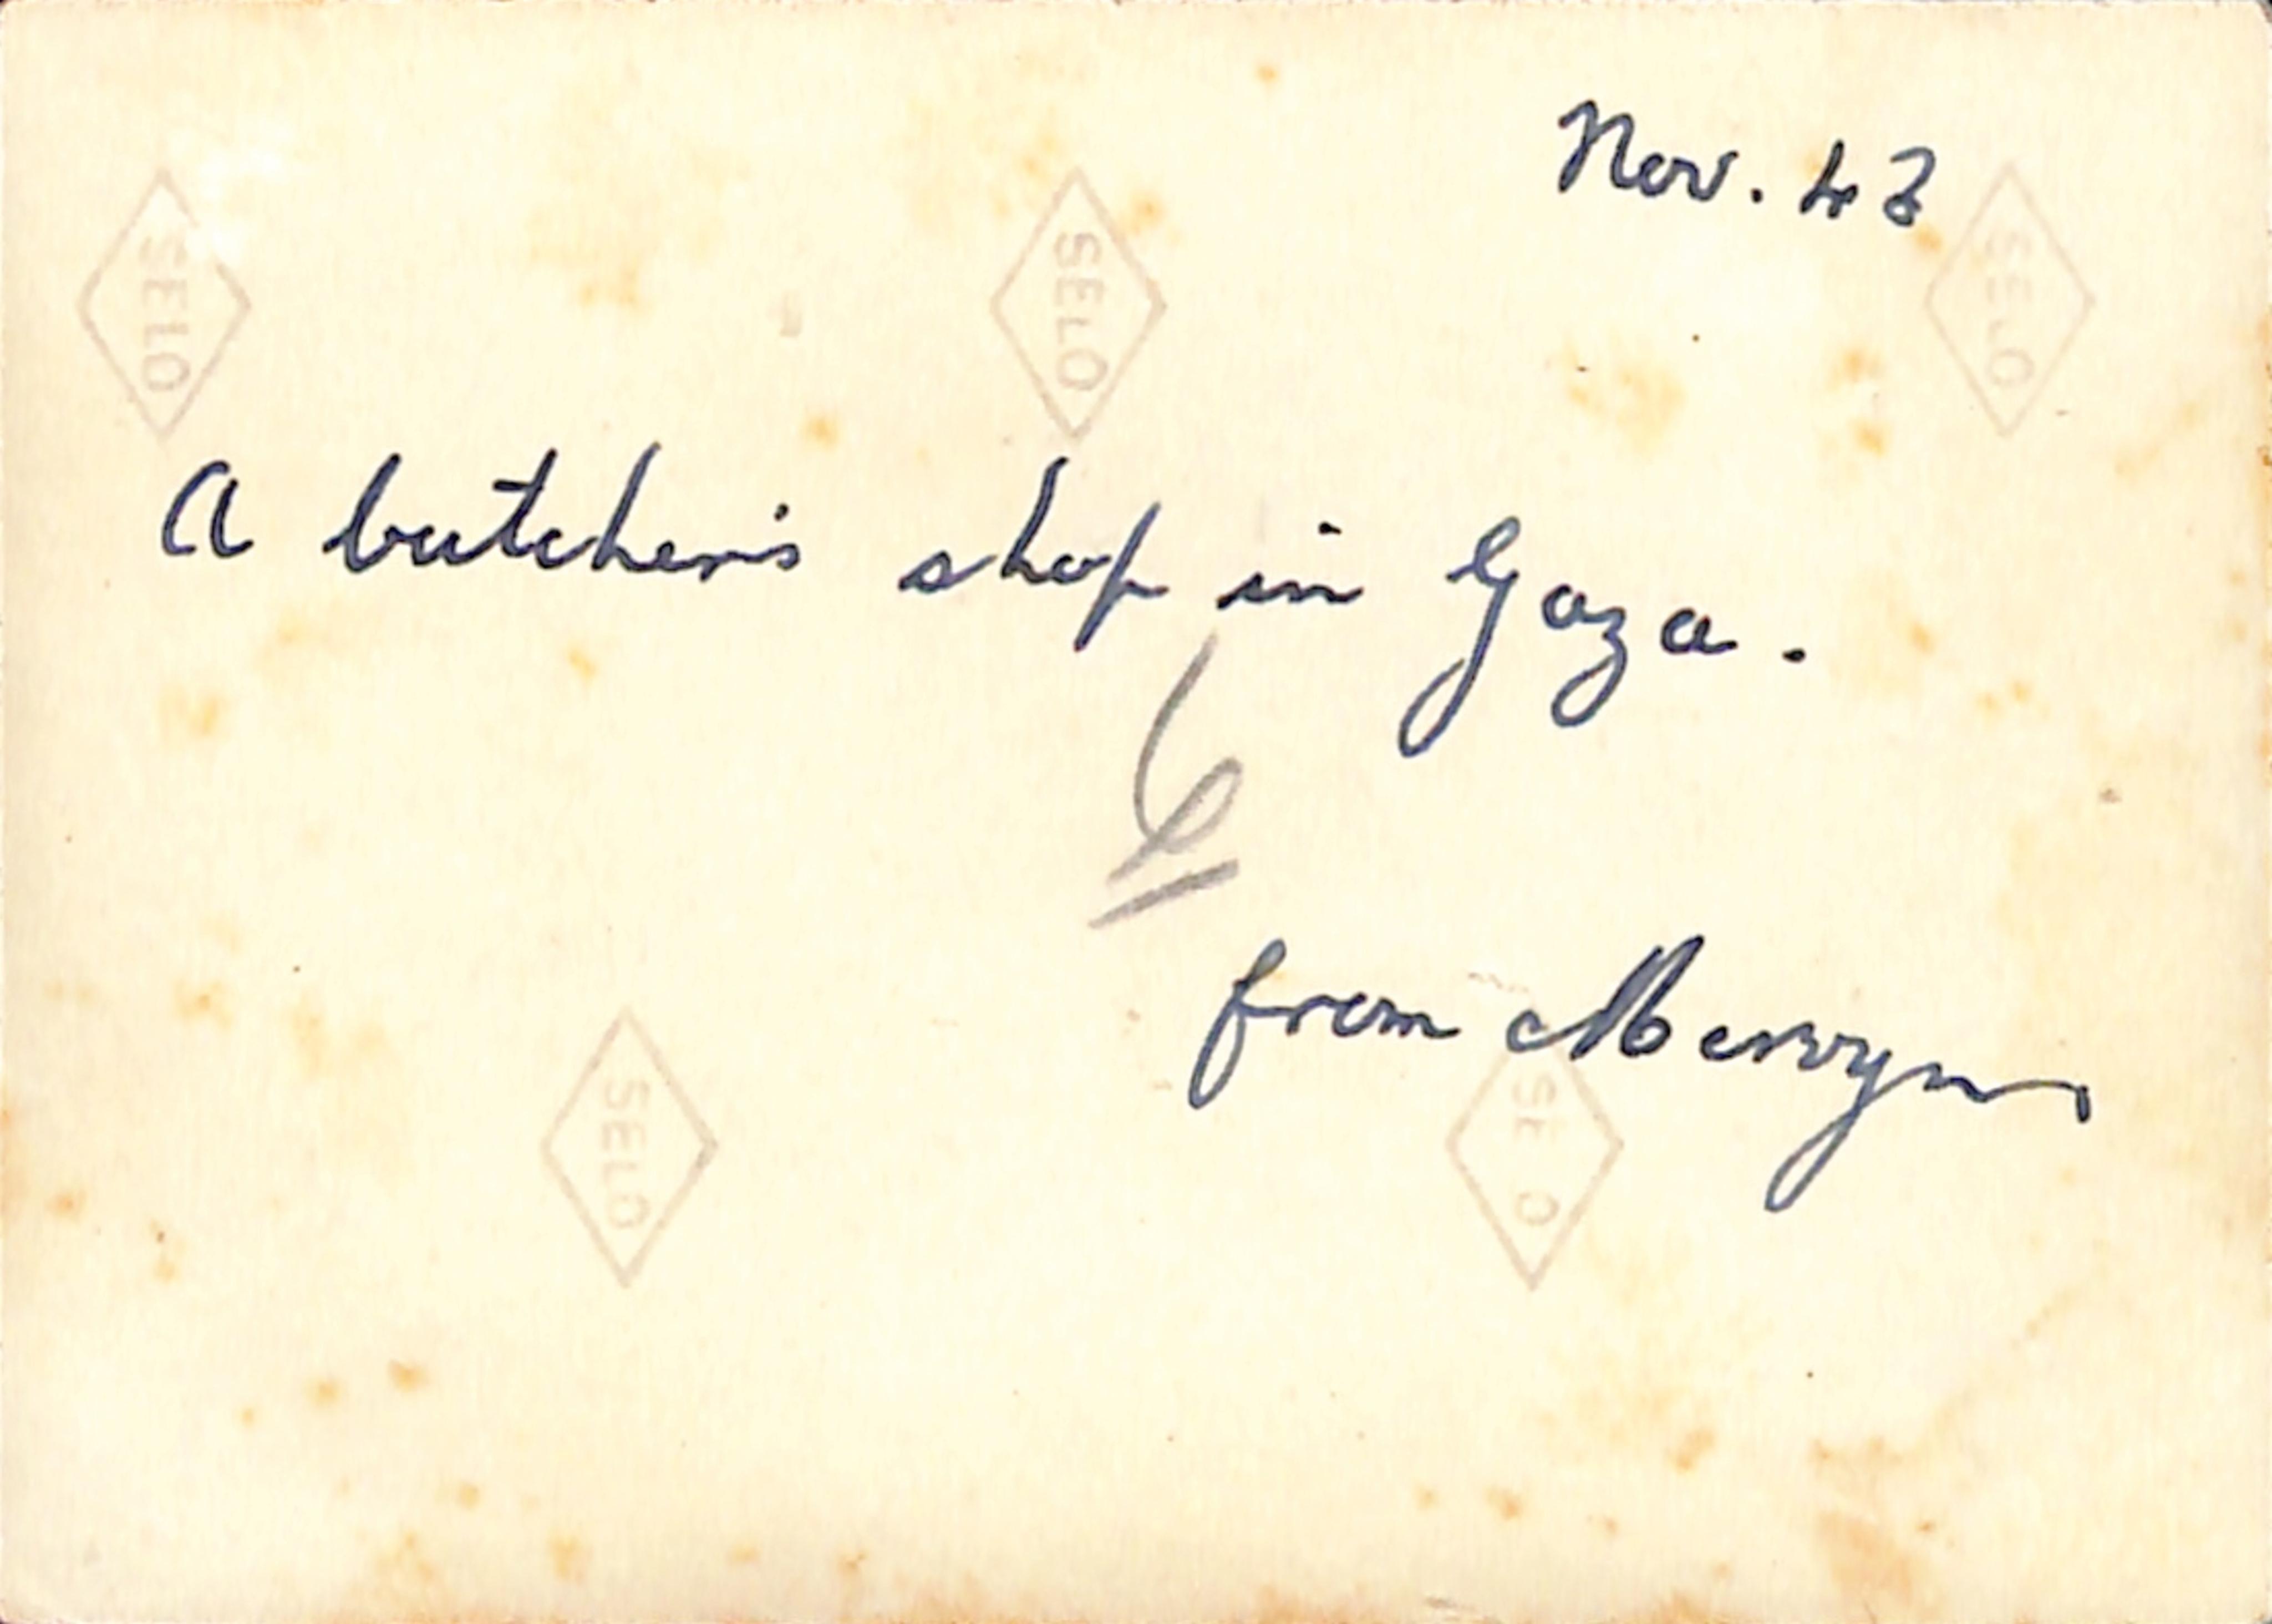 Nov. 43
SELO
SELO
SELO
A butcher's shop in Gaza.
6
from Mervyn
SELO
SELO